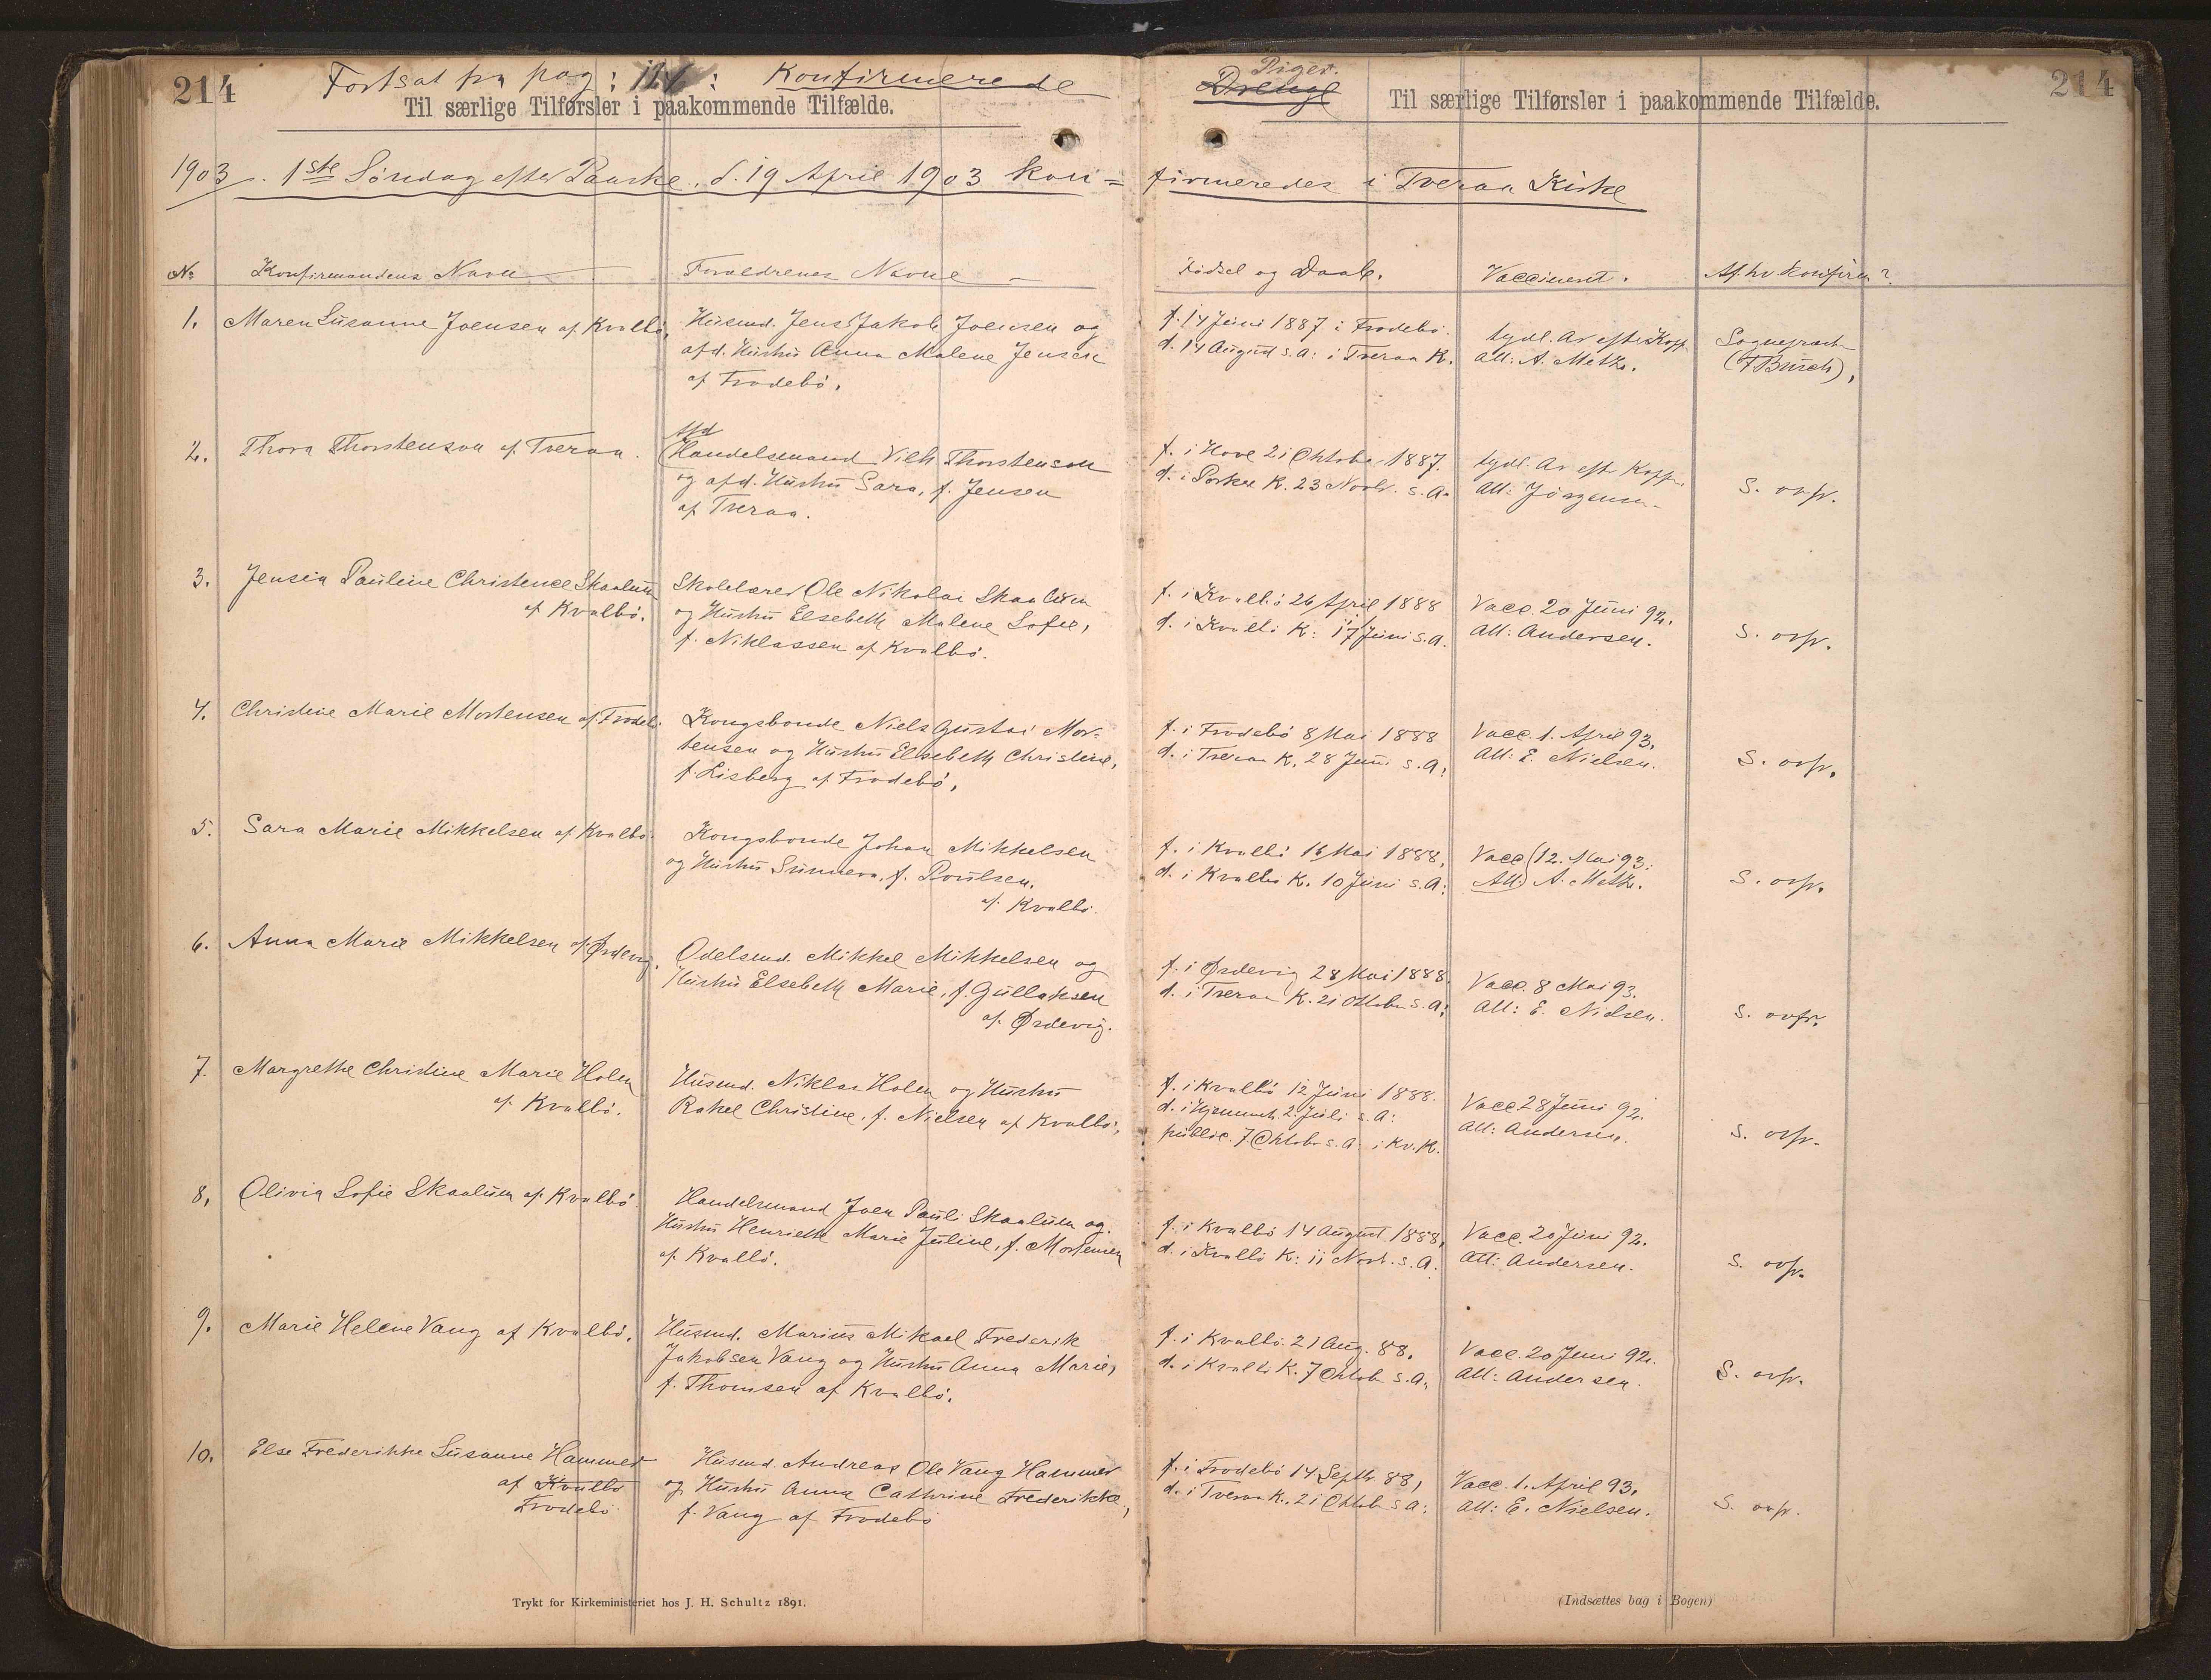 214
Fortsat fra pag: 114: Konfirmerede
Piger.
Drenge
Til særlige Tilførsler i paakommende Tilfælde.
Til særlige Tilførsler i paakommende Tilfælde.
214
1903. 1ste Søndag efter Paaske, d. 19 April 1903 kon=
firmeredes i Tveraa Kirke
No Konfirmandens Navn
Forældrenes Navne
Fødsel og Daab.
Vaccineret.
Af hv. konfirm?
1. Maren Susanne Joensen af Kvalbø,
Husmd. Jens Jakob Joensen og
afd. Hustru Anna Malene Jensen
af Frodebø.
f. 14 Juni 1887 i Frodebø.
d. 14 August s.A: i Tveraa K.
tydl. Ar efter Kopp.
Att: A. Metz.
Sognepræst
(F Busch),
2. Thora Thorstenson af Tveraa.
Afd
Handelsmand Vilh Thorstenson
og afd. Hustru Sara, f. Jensen
af Tveraa.
f. i Hove 21 Oktober 1887.
d. i Porkeri K. 23 Novbr. s.A.
tydl. Ar eft Kopper.
Att: Jörgensen.
S. ovfr.
3. Jensia Pauline Christence Skaalum
af Kvalbø.
Skolelærer Ole Nikolai Skaalum
og Hustru Elsebeth Malene Sofie,
f. Niklassen af Kvalbø.
f. i Kvalbø 26 April 1888
d. i Kvalbø K: 17 Juni s.A.
Vacc. 20 Juni 92.
Att: Andersen.
S. ovfr.
4. Christine Marie Mortensen af Frodebø.
Kongsbonde Niels Gustav Mor-
tensen og Hustru Elsebeth Christine,
f. Lisberg af Frodebø,
f. i Frodebø 8 Mai 1888
d. i Tveraa K. 28 Juni s.A.
Vacc. 1. April 93.
Att: E. Nielsen.
S. ovfr.
5. Sara Marie Mikkelsen af Kvalbø
Kongsbonde Johan Mikkelsen
og Hustru Sunneva, f. Poulsen.
af Kvalbø.
f. i Kvalbø 16 Mai 1888,
d. i Kvalbø K. 10 Juni s.A:
Vacc. (12. Mai 93.
Att:) A. Metz.
S. ovfr.
6. Anna Marie Mikkelsen af Ørdevig.
Odelsmd. Mikkel Mikkelsen og
Hustru Elsebeth Marie, f. Gullaksen
af Ørdevig.
f. i Ørdevig 28 Mai 1888.
d. i Tveraa K. 21 Oktober s.A:
Vacc. 8 Mai 93.
Att: E. Nielsen.
S. ovfr.
7. Margrethe Christine Marie Holm
af Kvalbø.
Husmd. Niklas Holm og Hustru
Rakel Christine, f. Nielsen af Kvalbø,
f. i Kvalbø 12 Juni 1888.
d. i Hjemmet. 2. Juli s.A:
public. 7 Oktob s.A. i Kv.K.
Vacc 28 Juni 92.
Att: Andersen.
S. ovfr.
8, Olivia Sofie Skaalum af Kvalbø.
Handelsmand Joen Pauli Skaalum og
Hustru Henriette Marie Juline, f. Mortensen
af Kvalbø.
f. i Kvalbø 14 August 1888,
d. i Kvalbø K: 11 Novb. s.A.
Vacc. 20 Juni 92.
Att: Andersen.
S. ovfr.
9. Marie Helene Vang af Kvalbø.
Husmd. Marius Mikael Frederik
Jakobsen Vang og Hustru Anna Marie,
f. Thomsen af Kvalbø.
f. i Kvalbø. 21 Aug. 88.
d. i Kvalbø K. 7 Oktob s.A:
Vacc. 20 Juni 92.
Att: Andersen.
S. ovfr.
10. Else Frederikke Susanne Hammer
af Kvalbø
Frodebø.
Husmd. Andreas Ole Vang Hammer
og Hustru Anna Cathrine Frederikke,
f. Vang af Frodebø
f. i Frodebø 14 Septb. 88,
d. i Tveraa K. 21 Oktob s A:
Vacc. 1. April 93.
Att: E. Nielsen.
S. ovfr.
Trykt for Kirkeministeriet hos J. H. Schultz 1891.
(Indsættes bag i Bogen)